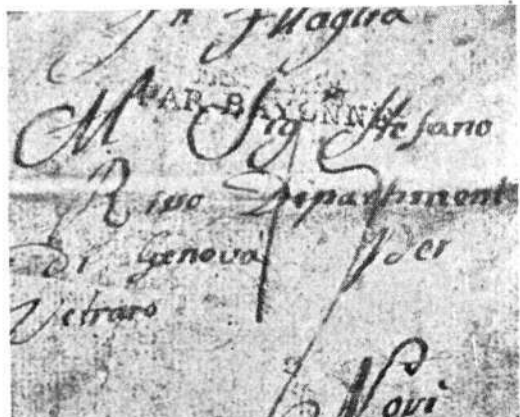 In Itaglia
PAR BAYONNE
M Sig Stefano
Rivo Department
Di Genova per
Vetraro
Novi